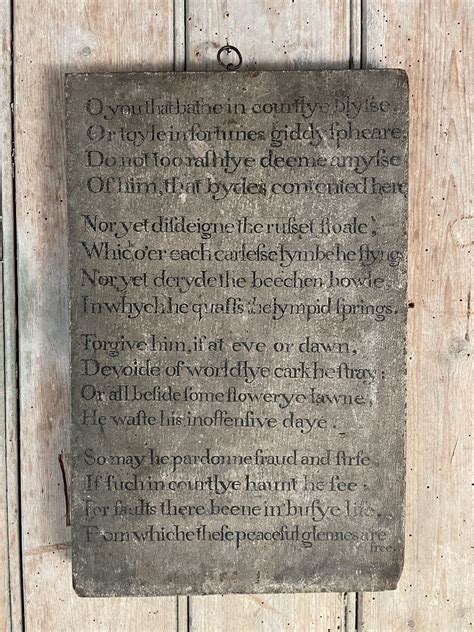 O you that bathe in courtlye blyſse,
Or toyle in fortunes giddy ſpheare,
Do not too raſhlye deeme amyſse
Of him, that bydes contented here
Nor yet diſdeigne the ruſset ſtoale,
Whic o'er each carleſse lymbe he flyng,
Nor yet deryde the beechen bowle,
In whych he quaffs the lympid ſprings.
Forgive him, if at eve or dawn,
Devoide of worldlye cark he ſtray;
Or all beſide ſome flowerye lawne,
He waſte his inoffenſive daye.
So may he pardonne fraud and ſtrfe,
If ſuch in courtlye haunt he ſee:
For faults there beene in buſye life,
From whiche theſe peaceful glennes are
free.